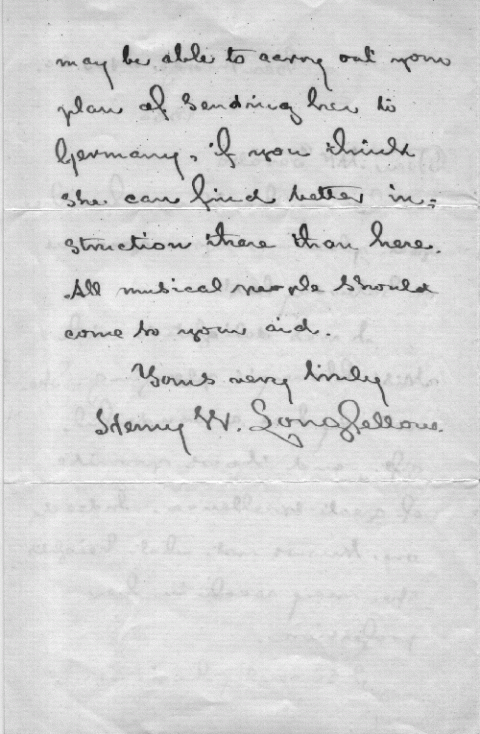 may be able to carry out your
plan of sending her to
Germany, if you think
she can find better in=
struction there than here.
All musical people should
come to your aid.
Yours very truly
Henry W. Longfellow.